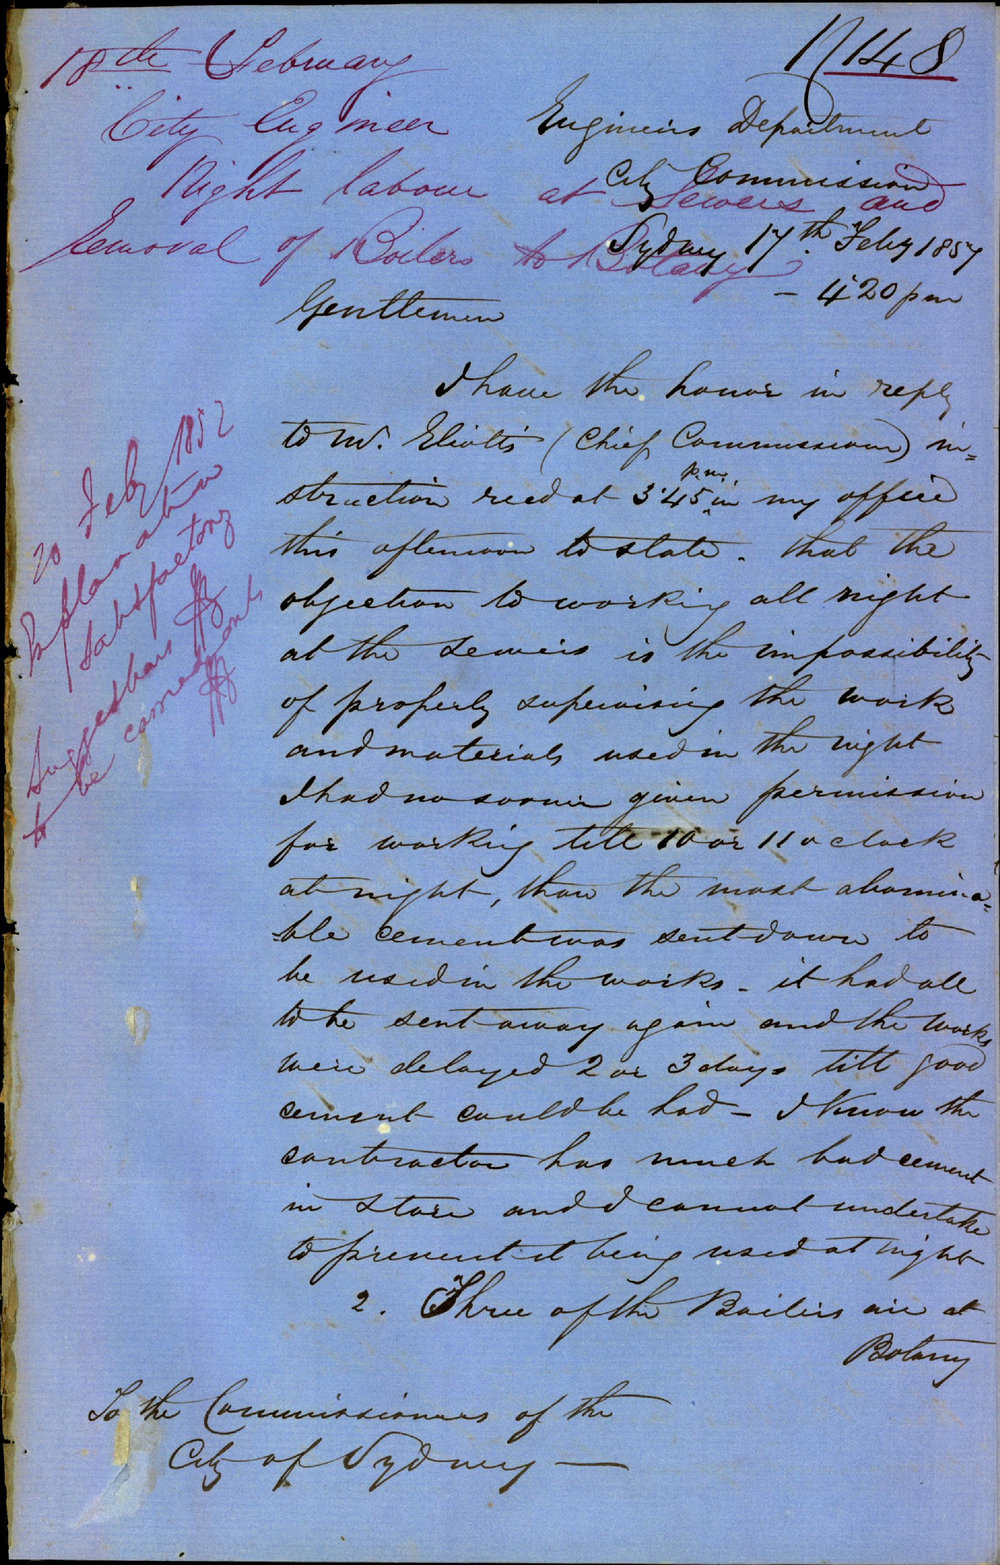 18th February
City Engineer
Night labour at Sewers and
Removal of Boilers to Botany
N 148
Engineers Department
City Commission
Sydney 17th Feby 1857
- 4.20 pm
Gentlemen
I have the honor in reply
to Mr. Eliott's (Chief Commissioner) in=
struction recd at 3.45 p.m. in my office
this afternoon to state - that the
objection to working all night
at the Sewers is the impossibility
of properly supervising the work
and materials used in the night
I had no sooner given permission
for working till 10 or 11 o clock
at night, than the most abomina=
=ble cement was sent down to
be used in the works - it had all
to be sent away again and the works
were delayed 2 or 3 days till good
cement could be had - I know the
contractor has much bad cement
in store and I cannot undertake
to prevent it being used at night
2. Three of the Boilers are at
Botany
To the Commissioners of the
City of Sydney —
20 Feby 1857
Explanation
Satisfactory
Suggestions
to be carried out